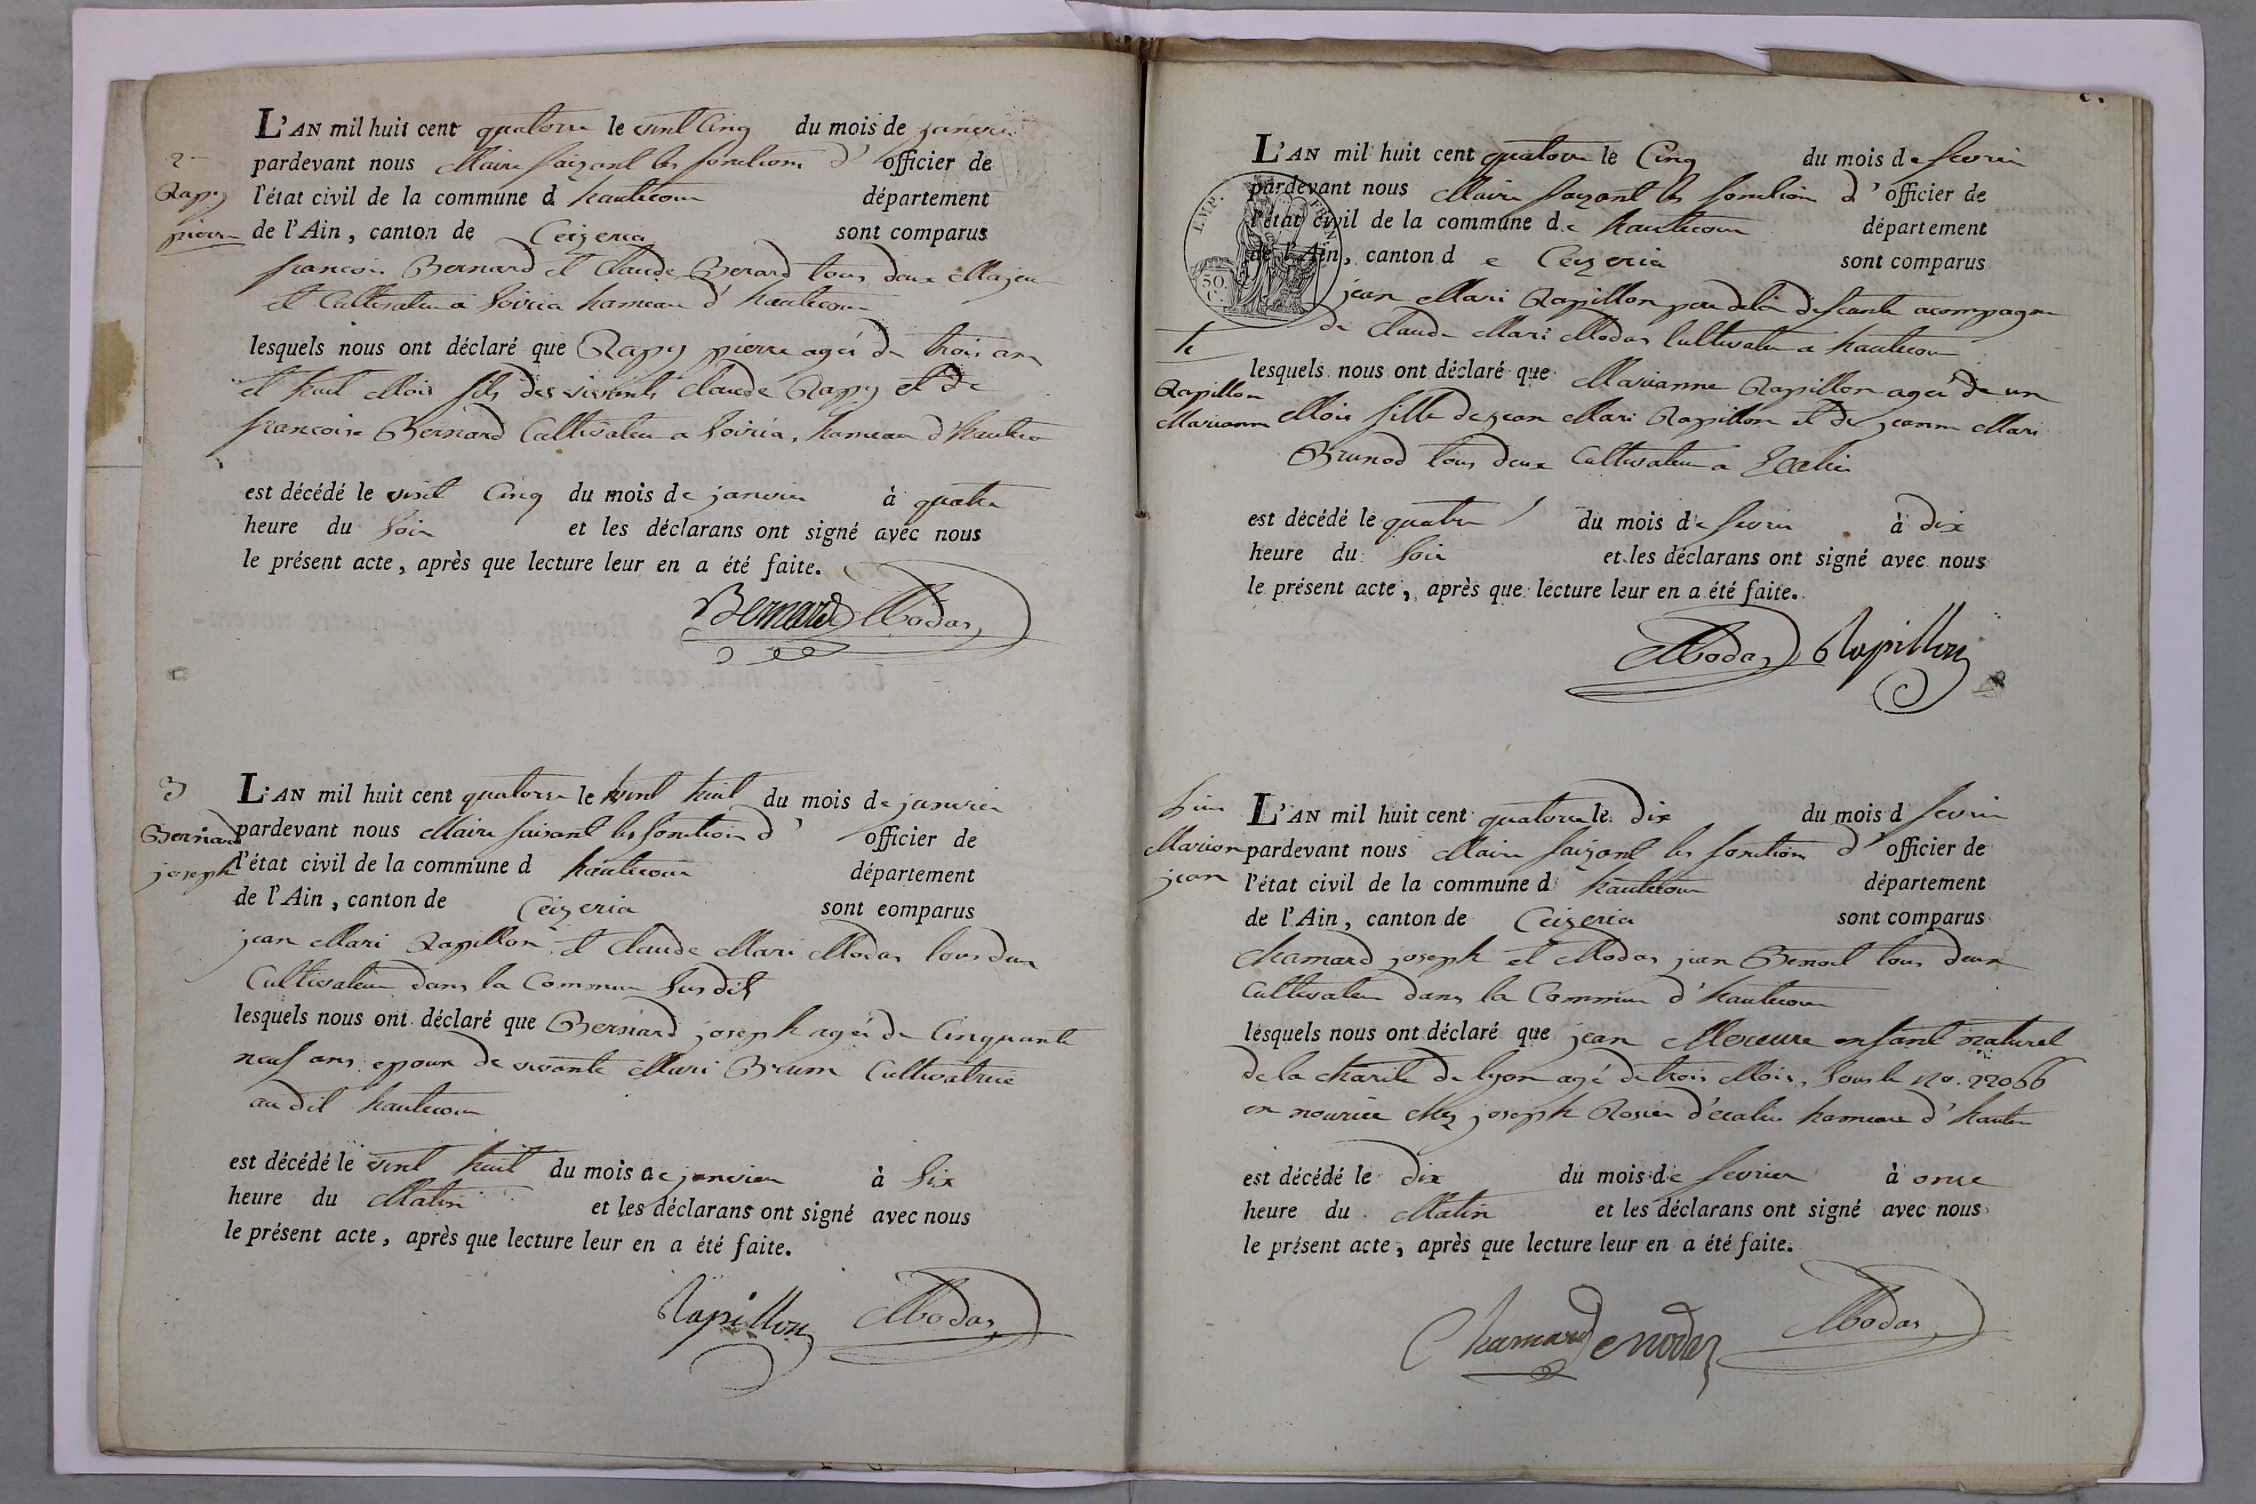 2
Rapy
pierre
L'AN mil huit cent quatorze le vint Cinq du mois de janvier
pardevant nous Maire faizant les fonctions d'officier de
l'état civil de la commune d hautecour département
de l'Ain, canton de Ceizeria sont comparus
francois Bernard et Claude Berard tous deux Majeur
et Cultivateur a Soiria hameau d'hautecour
lesquels nous ont déclaré que Rapy pierre ageé de trois ans
et huit Mois fils des vivants Claude Rapy et de
francoise Bernard Cultivateur a Soiria, hameau d'hauteco
est décédé le vint Cinq du mois de janvier à quatre
heure du Soir et les déclarans ont signé avec nous
le présent acte, après que lecture leur en a été faite.
Bernard Modas
3
Bernard
joseph
L'AN mil huit cent quatorze le vint huit du mois de janvier
pardevant nous Maire faisant les fonction d' officier de
l'état civil de la commune d hautecour département
de l'Ain, canton de Ceizeria sont comparus
jean Mari Rapillon et Claude Mari Modas tous deux
Cultivateur dans la Commune Susdit
lesquels nous ont déclaré que Bernard joseph ageé de Cinquante
neuf ans epoux de vivante Mari Brum Cultivatrice
au dit hautecour
est décédé le vint huit du mois de janvier à Six
heure du Matin et les déclarans ont signé avec nous
le présent acte, après que lecture leur en a été faite.
Rapillon Modas
2.
L'AN mil huit cent quatorze le Cinq du mois de fevrier
pardevant nous Maire faizant les fonction d'officier de
l'état civil de la commune de hautecour département
de l'Ain, canton d e Ceizeria sont comparus
IMP. FRAN
50
C.
jean Mari Rapillon pere de la defeunte acompagne
de Claude Mari Modas Cultivateur a hautecour
4
Rapillon
Marianne
lesquels nous ont déclaré que Marianne Rapillon ageé de un
Mois fille de jean Mari Rapillon et de jeanne Mari
Brunod tous deux Cultivateur a
est décédé le quatre du mois de fevrier à dix
heure du Soir et les déclarans ont signé avec nous
le présent acte, après que lecture leur en a été faite.
Modas Rapillon
Marion
jean
L'AN mil huit cent quatorze le dix du mois d fevrier
pardevant nous Maire faizant les fonctions d'officier de
l'état civil de la commune d hautecour département
de l'Ain, canton de Ceizeria sont comparus
Chamard joseph et Modas jean Benoit tous deux
Cultivateur dans la Commune d'hautecour
lesquels nous ont déclaré que jean Mercure enfant naturel
de la charite de lyon agé de trois Mois, Sous le no. 22066
en nourice chez joseph Rosier d' hameau d'hautec
est décédé le dix du mois de fevrier à onze
heure du Matin et les déclarans ont signé avec nous
le présent acte, après que lecture leur en a été faite.
Chamard modas Modas